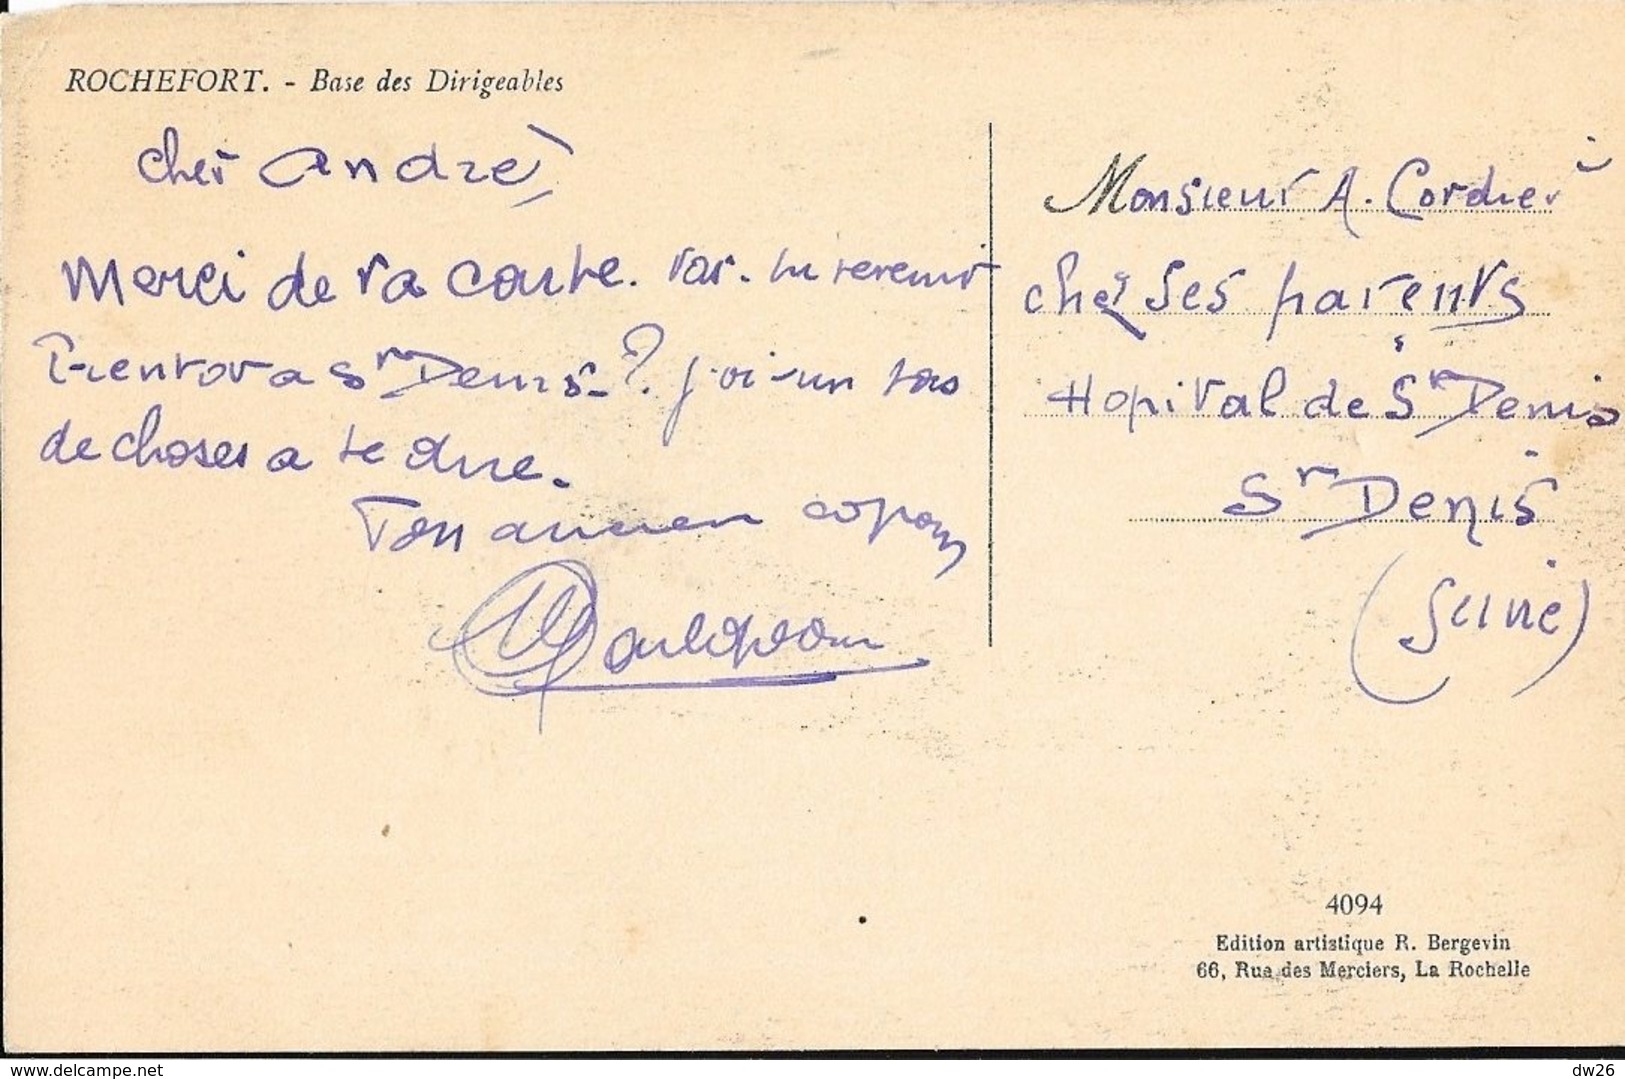 ROCHEFORT. - Base des Dirigeables
Cher André,
Merci de ta carte. Vas-tu revenir
Bientot a St Denis-? j'ai un tas
de choses a te dire.
Ton ancien copain
Monsieur A. Cordier
chez ses parents
Hopital de St Denis
St Denis
(Seine)
4094
Edition artistique R. Bergevin
66, Rue des Merciers, La Rochelle
delcampe.net
dw26